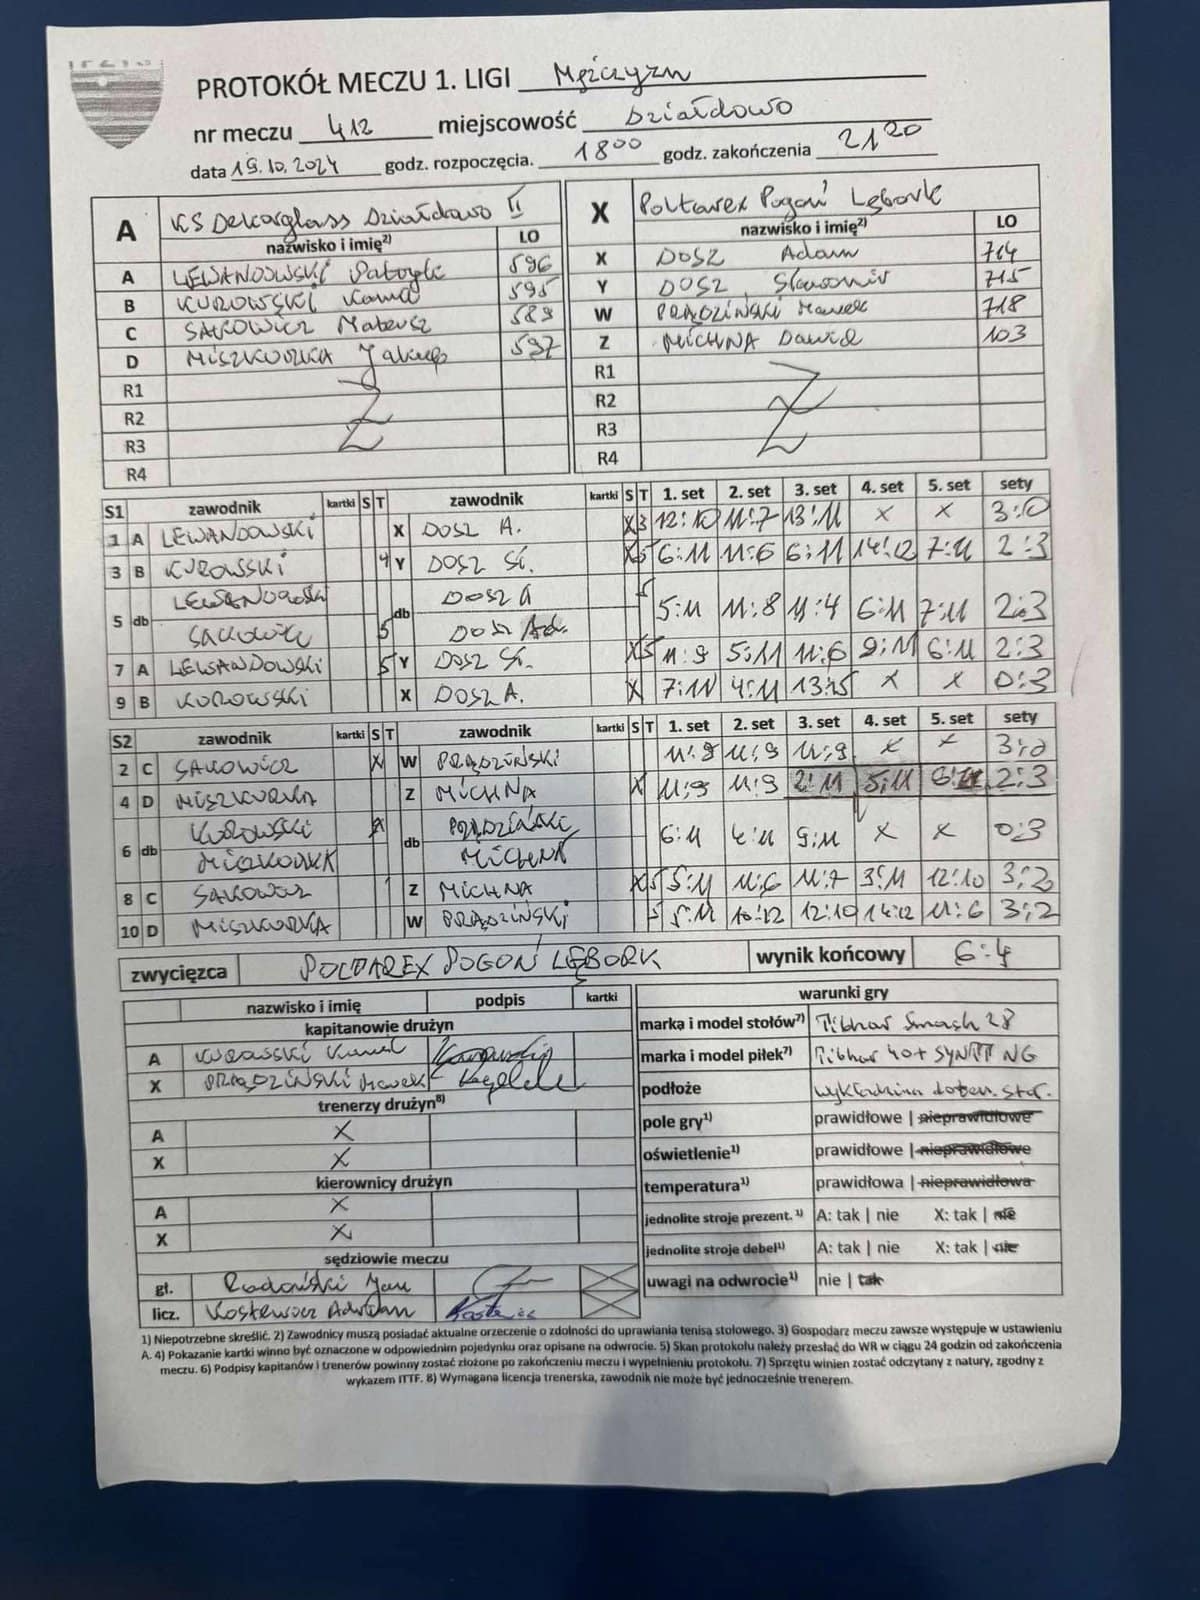 PROTOKÓŁ MECZU 1. LIGI Mężczyzn
nr meczu 412 miejscowość Działdowo
data 19.10.2024 godz. rozpoczęcia. 18⁰⁰ godz. zakończenia 21²⁰
A KS Dekorglass Działdowo II X Poltarex Pogoń Lębork
nazwisko i imię²⁾ LO nazwisko i imię²⁾ LO
A LEWANDOWSKI Patryk 596 X DOSZ Adam 714
B KUROWSKI Kamil 595 Y DOSZ Sławomir 715
C SAKOWICZ Mateusz 589 W PRĄDZIŃSKI Marek 718
D MISZKURKA Jakub 597 Z MICHNA Dawid 103
R1 R1
R2 R2
R3 R3
R4 R4
S1 zawodnik kartki S T zawodnik kartki S T 1. set 2. set 3. set 4. set 5. set sety
1 A LEWANDOWSKI X DOSZ A. X 3 12:10 11:7 13:11 X X 3:0
3 B KUROWSKI 4 Y DOSZ Sł. X 5 6:11 11:6 6:11 14:12 7:11 2:3
5 db LEWANDOWSKI db DOSZ A 5 5:11 11:8 11:4 6:11 7:11 2:3
SAKOWICZ 5 DOSZ
7 A LEWANDOWSKI 5 Y DOSZ Sł. X 5 11:9 5:11 11:6 9:11 6:11 2:3
9 B KUROWSKI X DOSZ A. X 7:11 4:11 13:15 X X 0:3
S2 zawodnik kartki S T zawodnik kartki S T 1. set 2. set 3. set 4. set 5. set sety
2 C SAKOWICZ X W PRĄDZIŃSKI 11:9 11:9 11:9 X X 3:0
4 D MISZKURKA Z MICHNA X 11:9 11:9 2:11 5:11 6:11 2:3
6 db KUROWSKI db PRĄDZIŃSKI 6:11 4:11 9:11 X X 0:3
MISZKURKA MICHNA
8 C SAKOWICZ 1 Z MICHNA X 5 5:11 11:6 11:7 3:11 12:10 3:2
10 D MISZKURKA W PRĄDZIŃSKI 5 5:11 10:12 12:10 14:12 11:6 3:2
zwycięzca POLTAREX POGOŃ LĘBORK wynik końcowy 6:4
nazwisko i imię podpis kartki warunki gry
kapitanowie drużyn marka i model stołów⁷⁾ Tibhar Smash 28
A KUROWSKI Kamil marka i model piłek⁷⁾ Tibhar 40+ SYNTT NG
X PRĄDZIŃSKI Marek podłoże wykładzina
trenerzy drużyn⁸⁾ pole gry¹⁾ prawidłowe | nieprawidłowe
A X oświetlenie¹⁾ prawidłowe | nieprawidłowe
X X temperatura¹⁾ prawidłowa | nieprawidłowa
kierownicy drużyn
A X jednolite stroje prezent. ¹⁾ A: tak | nie X: tak | nie
X X jednolite stroje debel¹⁾ A: tak | nie X: tak | nie
sędziowie meczu uwagi na odwrocie¹⁾ nie | tak
gł. Radoński Jan
licz. Adrian
1) Niepotrzebne skreślić. 2) Zawodnicy muszą posiadać aktualne orzeczenie o zdolności do uprawiania tenisa stołowego. 3) Gospodarz meczu zawsze występuje w ustawieniu
A. 4) Pokazanie kartki winno być oznaczone w odpowiednim pojedynku oraz opisane na odwrocie. 5) Skan protokołu należy przesłać do WR w ciągu 24 godzin od zakończenia
meczu. 6) Podpisy kapitanów i trenerów powinny zostać złożone po zakończeniu meczu i wypełnieniu protokołu. 7) Sprzętu winien zostać odczytany z natury, zgodny z
wykazem ITTF. 8) Wymagana licencja trenerska, zawodnik nie może być jednocześnie trenerem.